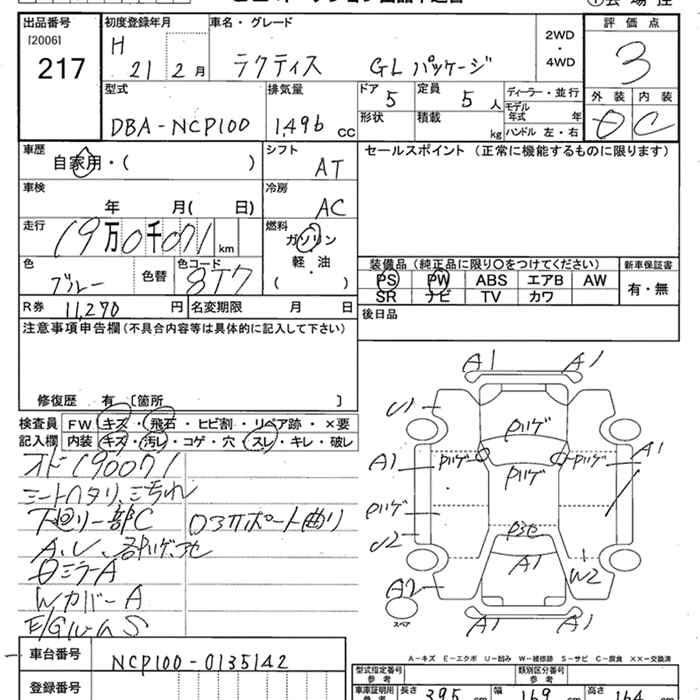 出品番号 初度登録年月 車名・グレード 2WD・4WD 評価点
[2006]
217 H 21 2月 ラクティス GLパッケージ 3
型式 排気量 ドア 5 定員 5人 ディーラー・並行 外装 内装
DBA-NCP100 1,496 cc 形状 積載 kg モデル年式 年 C
ハンドル 左・右
車歴 シフト セールスポイント (正常に機能するものに限ります)
自家用・( ) AT
車検 冷房
年 月( 日) AC
走行 燃料
19万0千071 km ガソリン
軽・油
( )
色 色替 色コード 装備品 (純正品に限り○をつけてください) 新車保証書
ブルー 8T7 PS PW ABS エアB AW 有・無
SR ナビ TV カワ
R券 11,270 円 名変期限 月 日 後日品
注意事項申告欄(不具合内容等は具体的に記入して下さい)
修復歴 有 〔箇所 〕
検査員 FW キズ・飛石・ヒビ割・リペア跡・×要
記入欄 内装 キズ・汚レ・コゲ・穴・スレ・キレ・破レ
オド190071
シートヘタリ、シ汚れ
下廻り一部C
Wカバー A
E/Gルーム S
A1 A1
U1
A1 A1
U2
A1 W2
A2
A1 A1
スペア
A-キズ E-エクボ U-凹み W-補修跡 S-サビ C-腐食 XX-交換済
車台番号 NCP100-0135142
登録番号
型式指定番号 類別区分番号
参考 参考
車庫証明用 長さ 395 cm 幅 169 cm 高さ 164 cm
参考